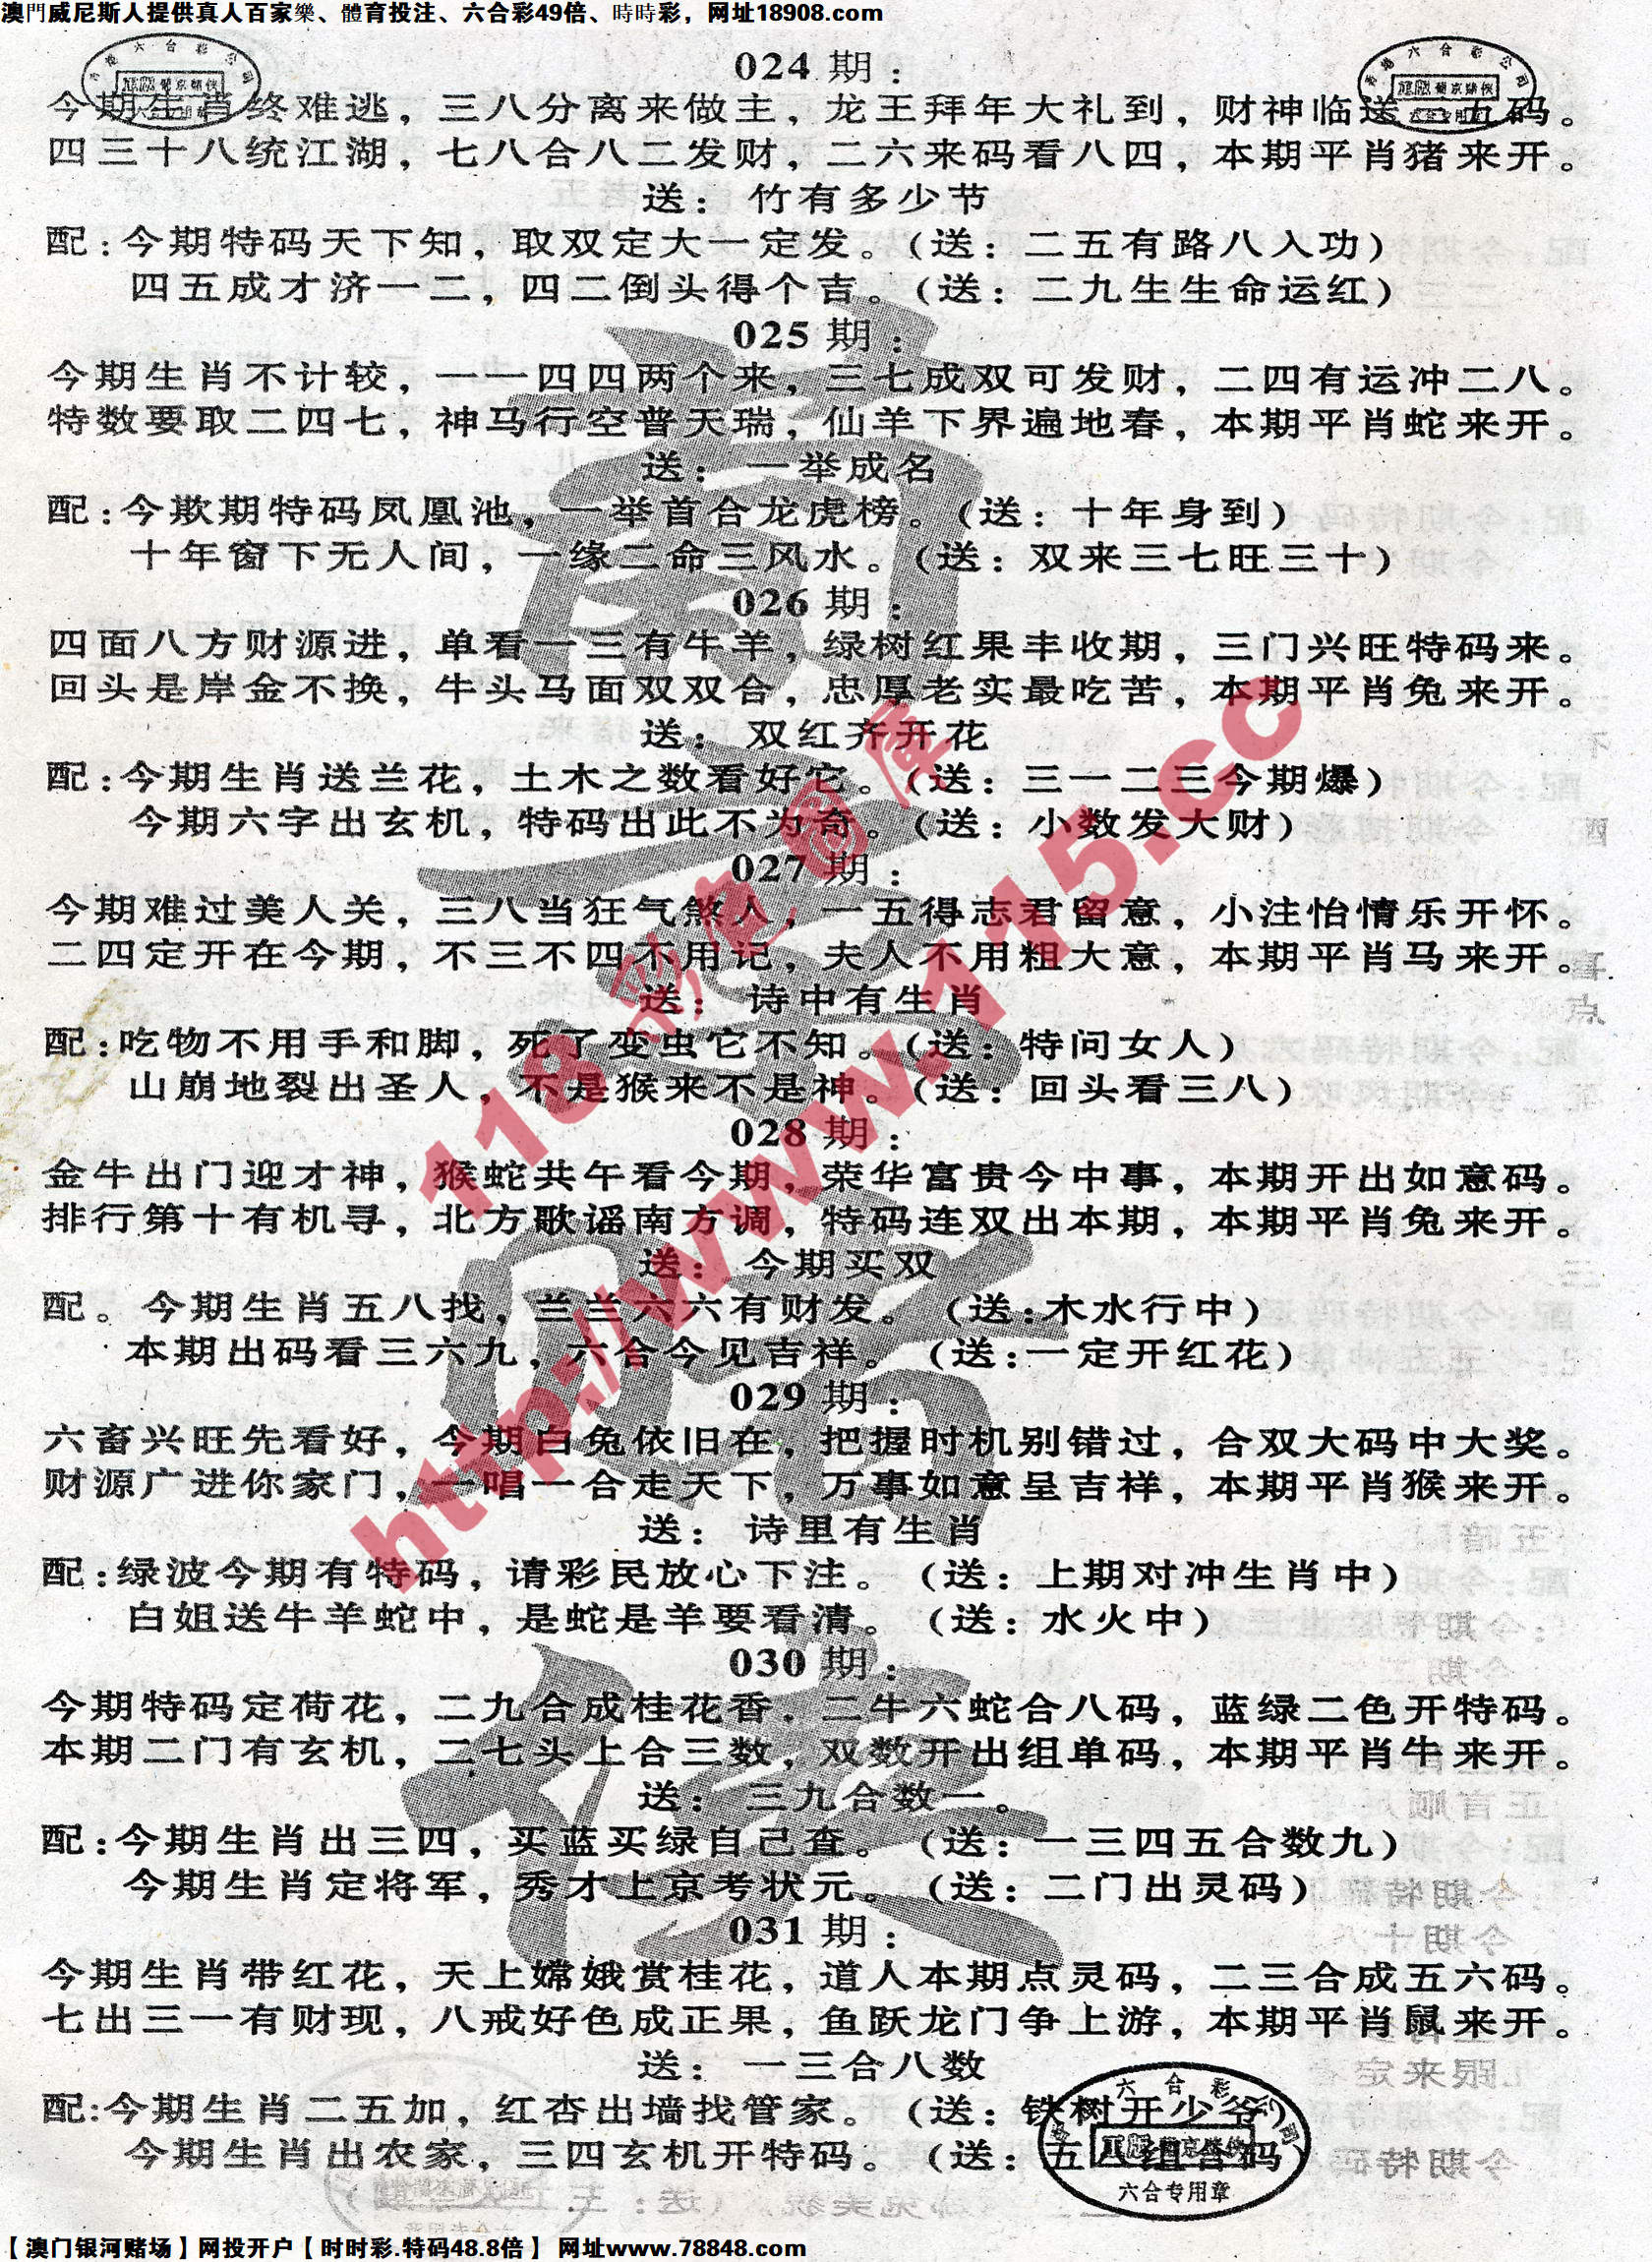 澳門威尼斯人提供真人百家樂、體育投注、六合彩49倍、時時彩，网址18908.com
024 期：
今期生肖终难逃，三八分离来做主，龙王拜年大礼到，财神临送一五码。
四三十八统江湖，七八合八二发财，二六来码看八四，本期平肖猪来开。
送：竹有多少节
配：今期特码天下知，取双定大一定发。（送：二五有路八入功）
四五成才济一二，四二倒头得个吉。（送：二九生生命运红）
025 期：
今期生肖不计较，一一四四两个来，三七成双可发财，二四有运冲二八。
特数要取二四七，神马行空普天瑞，仙羊下界遍地春，本期平肖蛇来开。
送：一举成名
配：今欺期特码凤凰池，一举首合龙虎榜。（送：十年身到）
十年窗下无人间，一缘二命三风水。（送：双来三七旺三十）
026 期：
四面八方财源进，单看一三有牛羊，绿树红果丰收期，三门兴旺特码来。
回头是岸金不换，牛头马面双双合，忠厚老实最吃苦，本期平肖兔来开。
送：双红齐开花
配：今期生肖送兰花，土木之数看好它。（送：三一二三今期爆）
今期六字出玄机，特码出此不为奇。（送：小数发大财）
027 期：
今期难过美人关，三八当狂气煞人，一五得志君留意，小注怡情乐开怀。
二四定开在今期，不三不四不用记，夫人不用粗大意，本期平肖马来开。
送：诗中有生肖
配：吃物不用手和脚，死了变虫它不知。（送：特问女人）
山崩地裂出圣人，不是猴来不是神。（送：回头看三八）
028 期：
金牛出门迎才神，猴蛇共午看今期，荣华富贵今中事，本期开出如意码。
排行第十有机寻，北方歌谣南方调，特码连双出本期，本期平肖兔来开。
送：今期买双
配。今期生肖五八找，兰兰六六有财发。（送：木水行中）
本期出码看三六九，六合今见吉祥。（送：一定开红花）
029 期：
六畜兴旺先看好，今期白兔依旧在，把握时机别错过，合双大码中大奖。
财源广进你家门，一唱一合走天下，万事如意呈吉祥，本期平肖猴来开。
送：诗里有生肖
配：绿波今期有特码，请彩民放心下注。（送：上期对冲生肖中）
白姐送牛羊蛇中，是蛇是羊要看清。（送：水火中）
030 期：
今期特码定荷花，二九合成桂花香，二牛六蛇合八码，蓝绿二色开特码。
本期二门有玄机，二七头上合三数，双数开出组单码，本期平肖牛来开。
送：三九合数一。
配：今期生肖出三四，买蓝买绿自己查。（送：一三四五合数九）
今期生肖定将军，秀才上京考状元。（送：二门出灵码）
031 期：
今期生肖带红花，天上嫦娥赏桂花，道人本期点灵码，二三合成五六码。
七出三一有财现，八戒好色成正果，鱼跃龙门争上游，本期平肖鼠来开。
送：一三合八数
配：今期生肖二五加，红杏出墙找管家。（送：铁树开少爷）
今期生肖出农家，三四玄机开特码。（送：五四组合码）
六合专用章
118彩色圖庫
http://www.115.cc
【澳门银河赌场】网投开户【时时彩.特码48.8倍】 网址www.78848.com